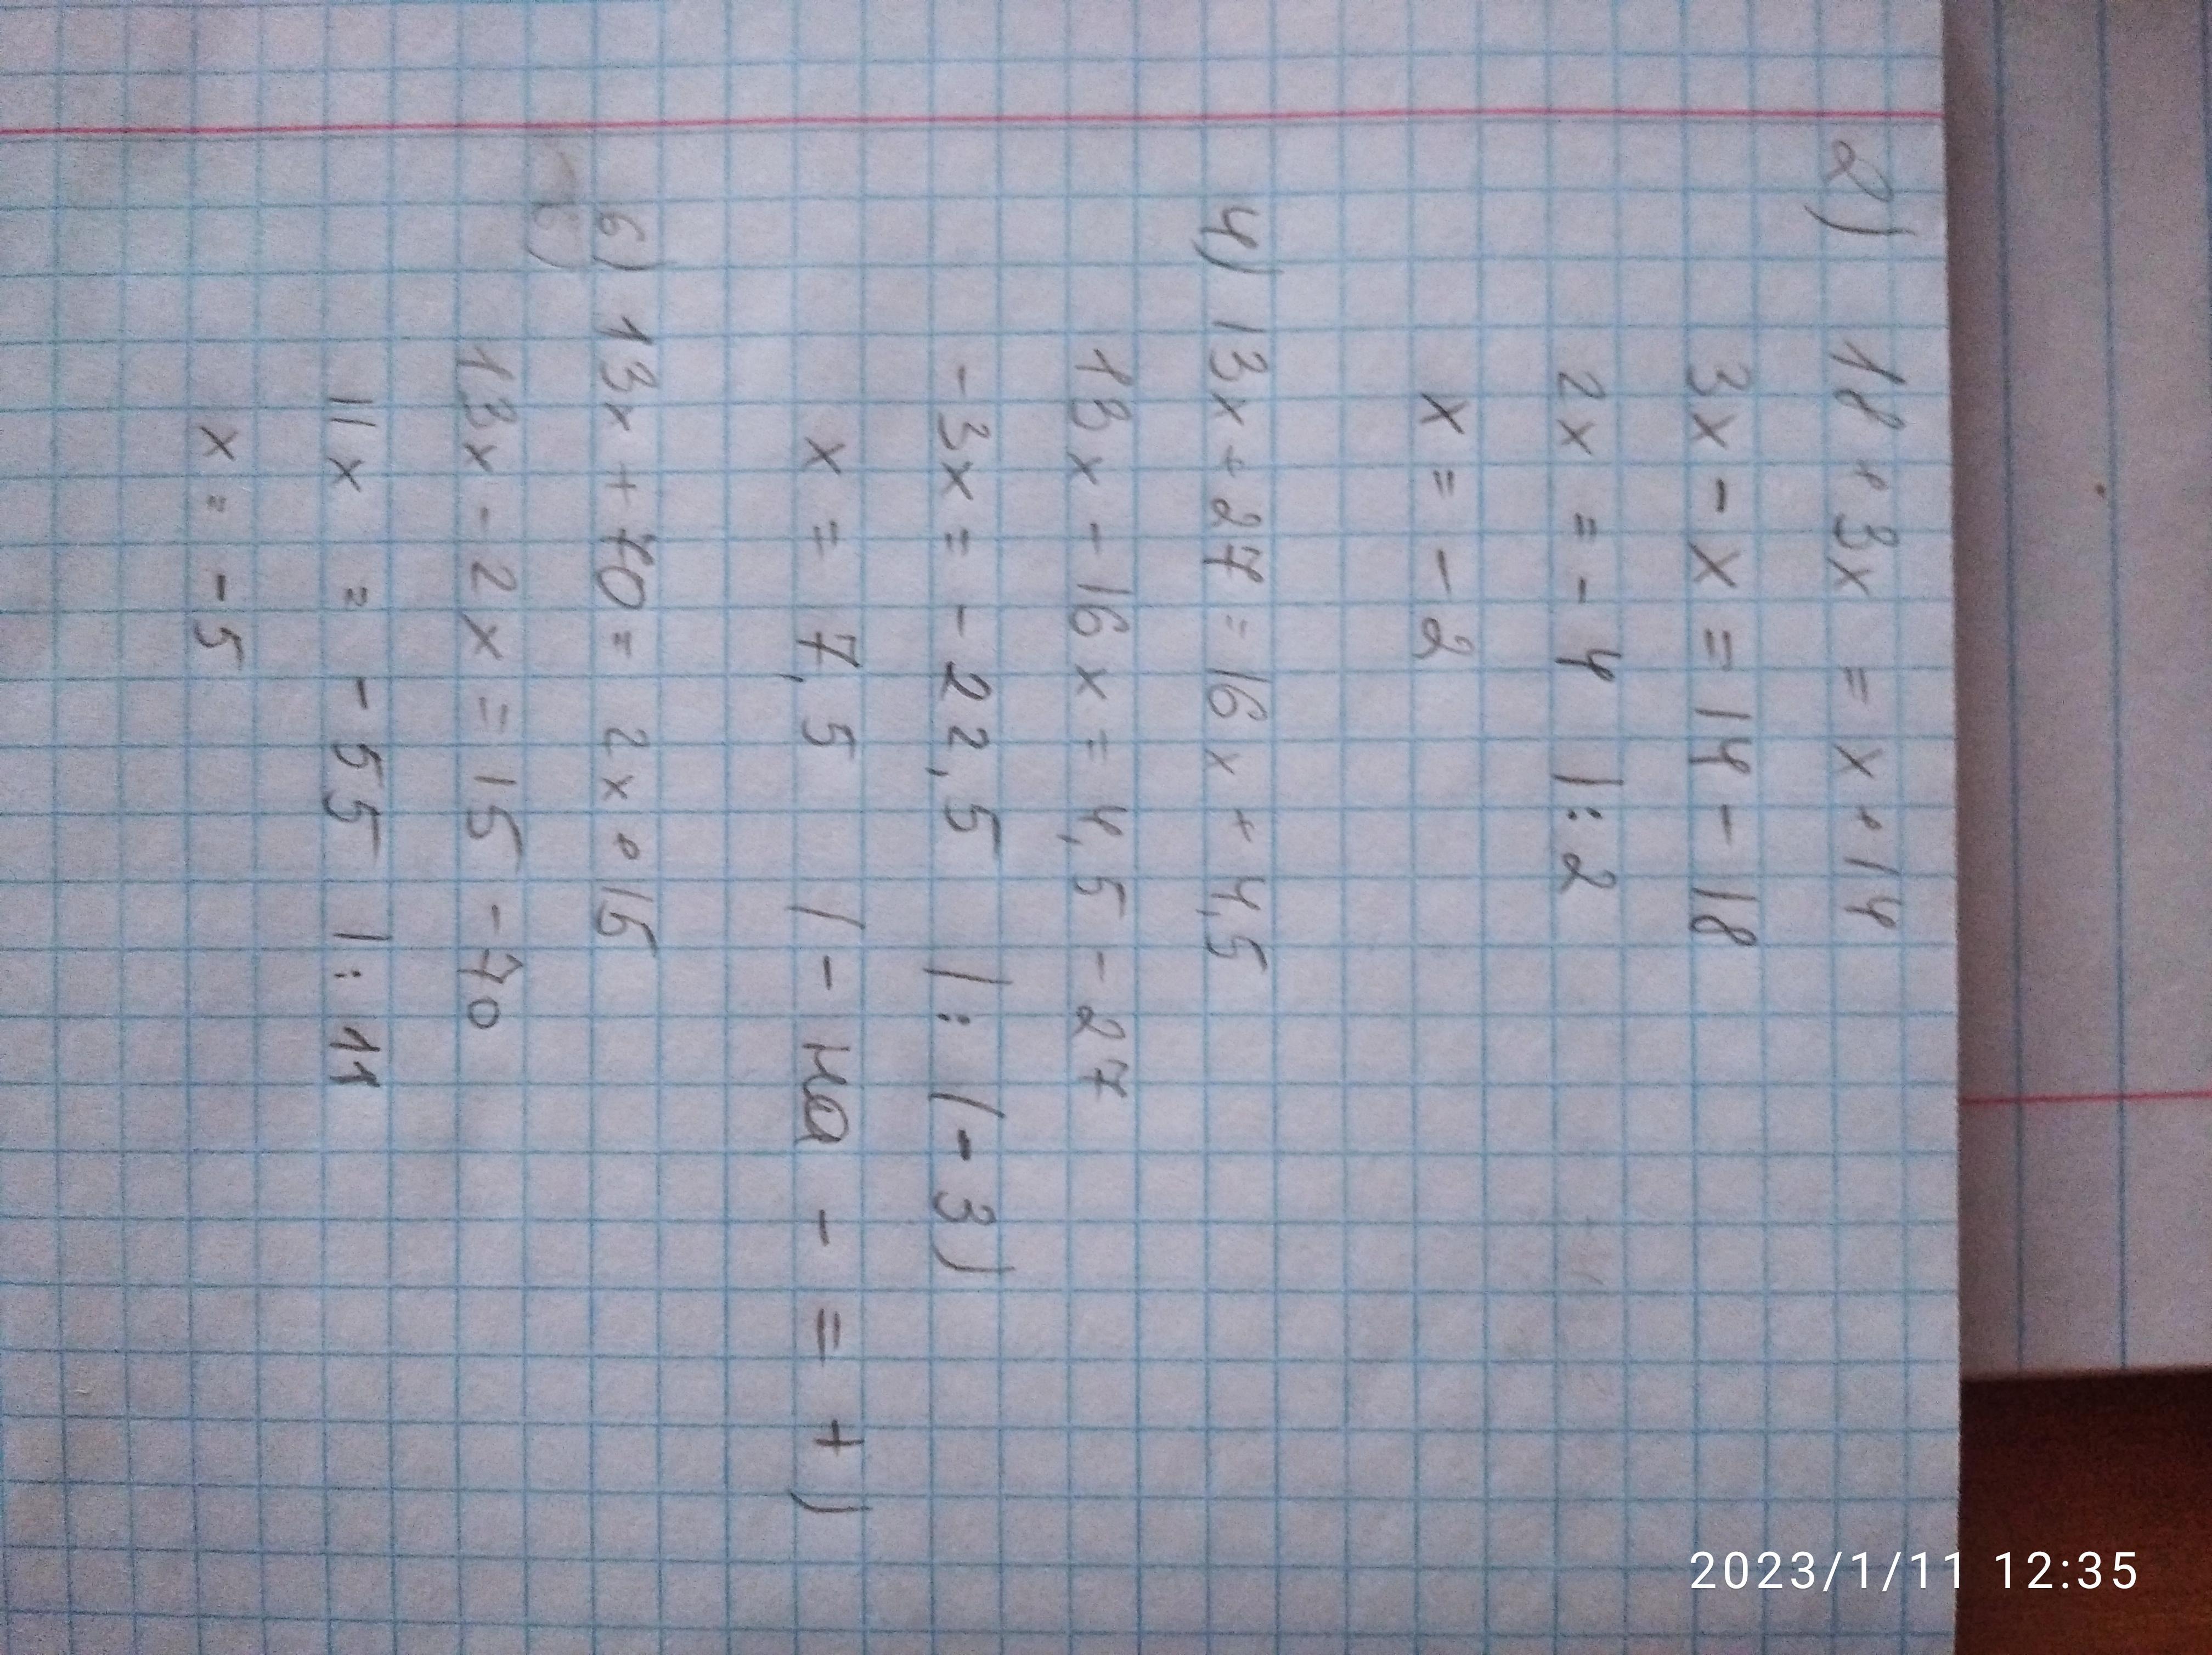 2) 18 + 3x = x + 14
3x - x = 14 - 18
2x = - 4 |: 2
x = - 2
4) 13x + 27 = 16x + 4,5
13x - 16x = 4,5 - 27
-3x = - 22,5 |: (-3)
x = 7,5 (- на - = +)
6) 13x + 70 = 2x + 15
13x - 2x = 15 - 70
11x = - 55 |: 11
x = - 5
2023/1/11 12:35